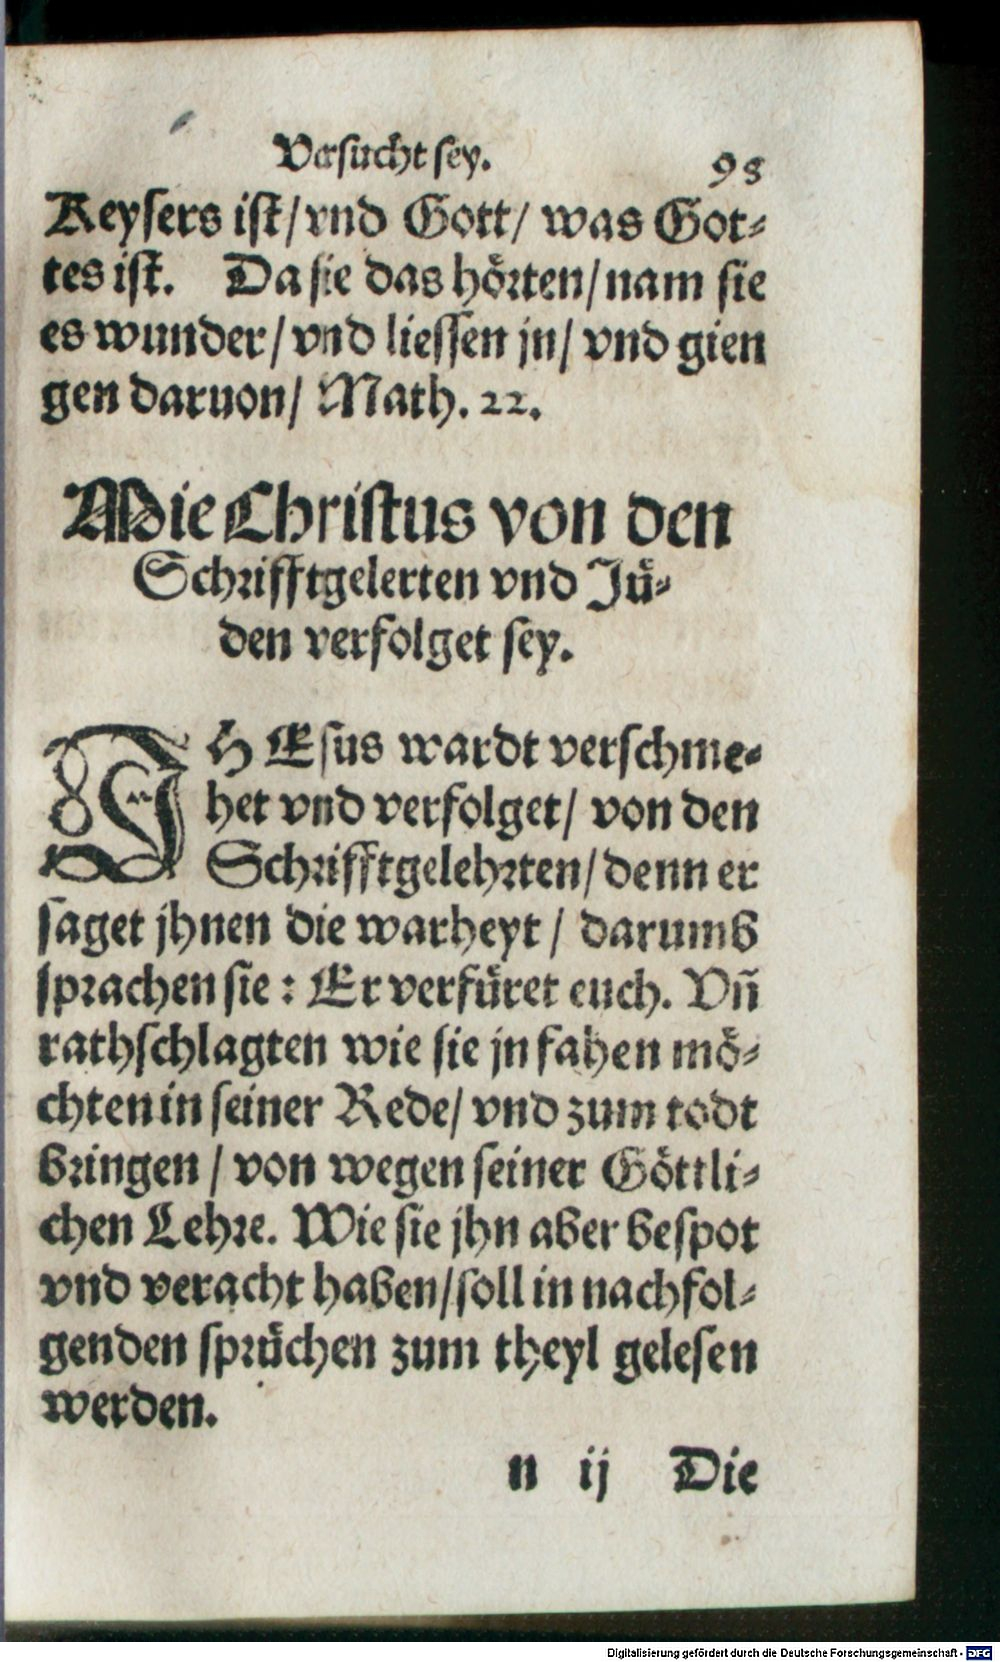 Versucht sey. 98
Keysers ist/vnd Gott/ was Got⸗
tes ist. Da sie das hörten/nam sie
es wunder/vnd liessen jn/ vnd gien
gen daruon/ Math. 22.
Wie Christus von den
Schrifftgelerten vnd Jü⸗
den verfolget sey.
JHEsus wardt verschme⸗
het vnd verfolget/ von den
Schrifftgelehrten/denn er
saget jhnen die warheyt / darumb
sprachen sie: Er verfüret euch. Vñ
rathschlagten wie sie jn fahen mö⸗
chten in seiner Rede/ vnd zum todt
bringen / von wegen seiner Göttli⸗
chen Lehre. Wie sie jhn aber bespot
vnd veracht haben/soll in nachfol⸗
genden sprüchen zum theyl gelesen
werden.
n ij Die
Digitalisierung gefördert durch die Deutsche Forschungsgemeinschaft - DFG